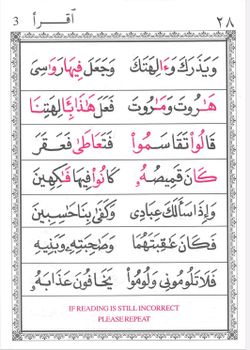 ٢٨ اقرأ 3
وَيَذَرَكَ وَءَالِهَتَكَ وَجَعَلَ فِيهَا رَوَاسِىَ
هَـٰرُوتَ وَمَـٰرُوتَ فَعَلَ هَـٰذَا بِـَٔالِهَتِنَا
قَالُوا۟ تَقَاسَمُوا۟ فَتَعَاطَىٰ فَعَقَرَ
كَانَ قَمِيصُهُۥ كَانُوا۟ فِيهَا فَـٰكِهِينَ
وَإِذَا سَأَلَكَ عِبَادِى وَكَفَىٰ بِنَا حَـٰسِبِينَ
فَكَانَ عَـٰقِبَتَهُمَا وَصَـٰحِبَتِهِۦ وَبَنِيهِ
فَلَا تَلُومُونِى وَلُومُوا۟ يَخَافُونَ عَذَابَهُۥ
IF READING IS STILL INCORRECT
PLEASE REPEAT